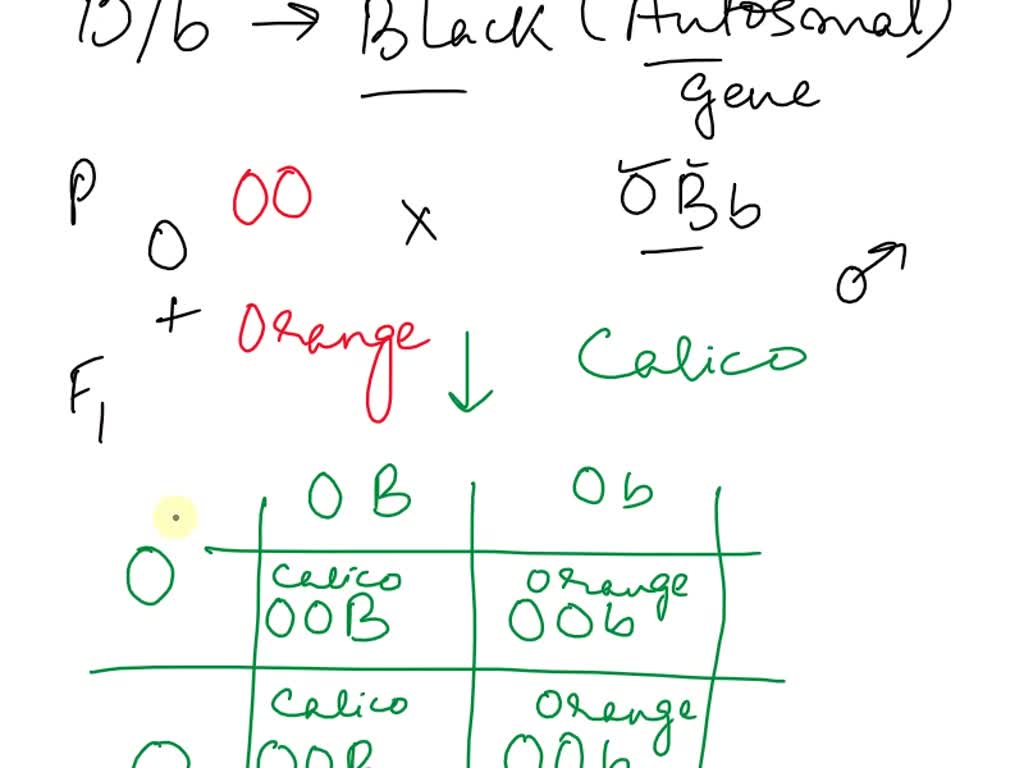 B/b → Black (Autosomal)
gene
P OO X OBb
O
+ Orange ↓ Calico ♂
F1
OB Ob
O Calico Orange
OOB OOb
Calico Orange
O OOB OOb